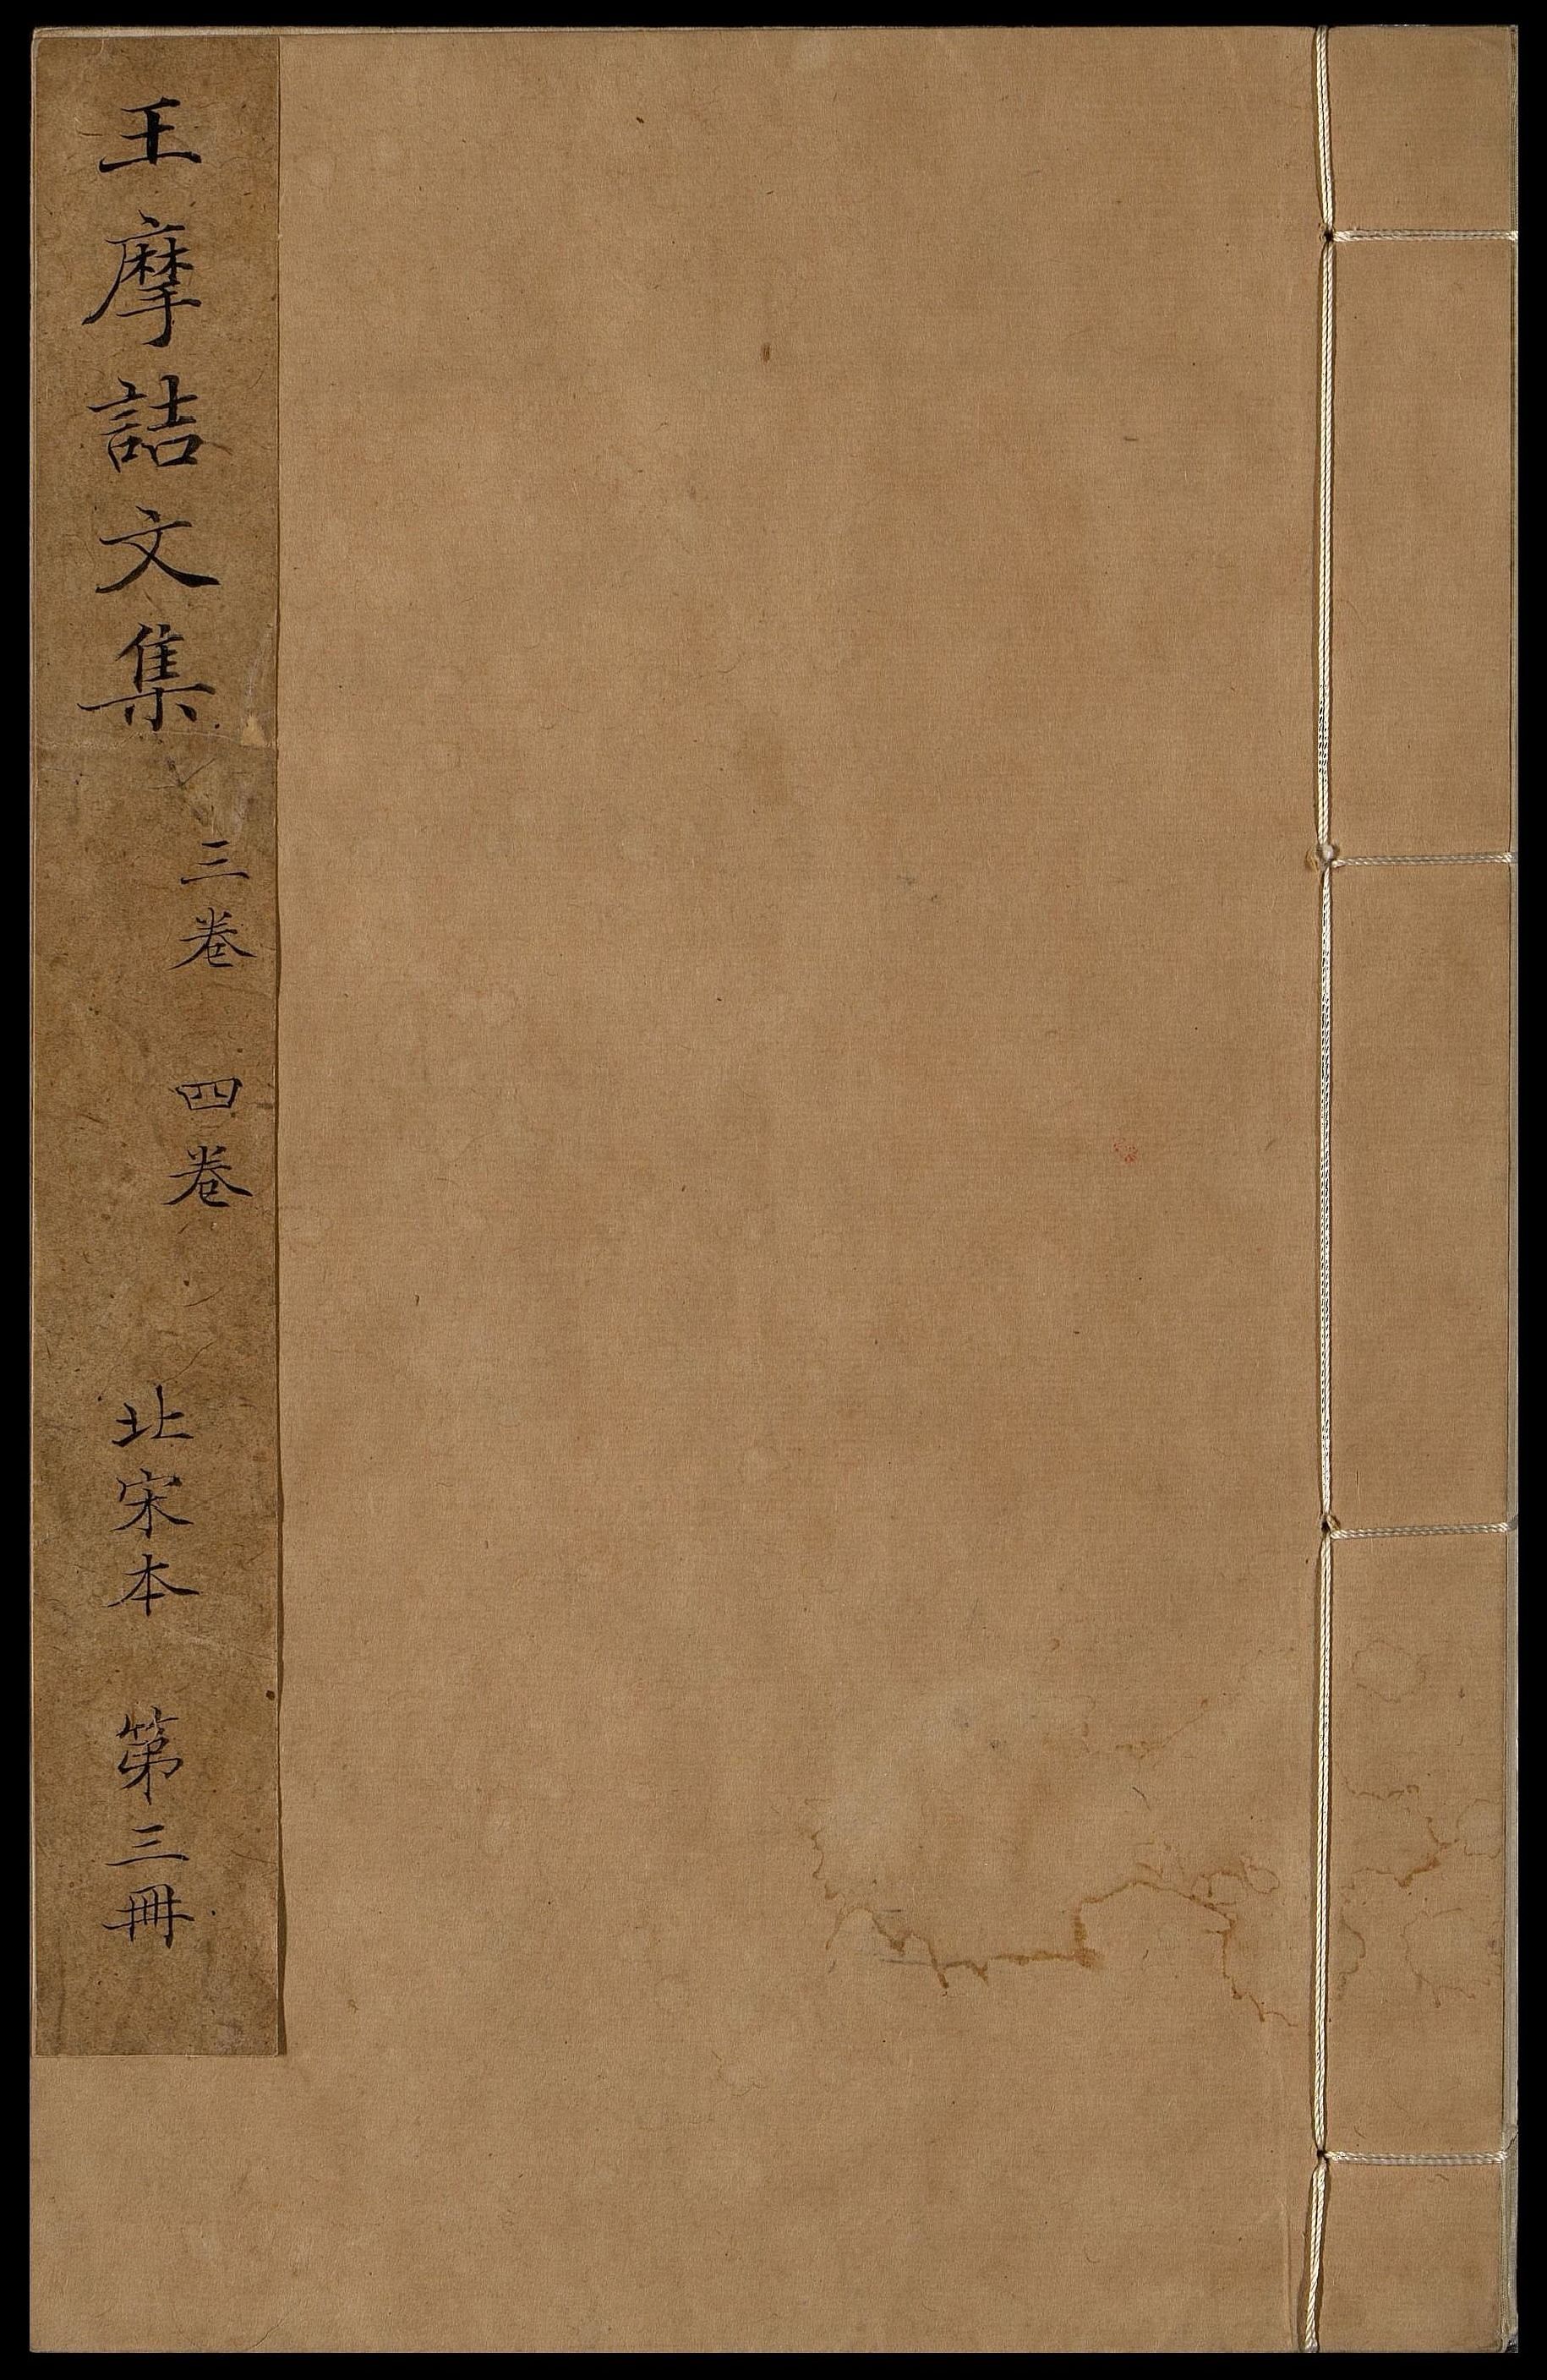 王摩詰文集
三卷 四卷
北宋本 第三冊